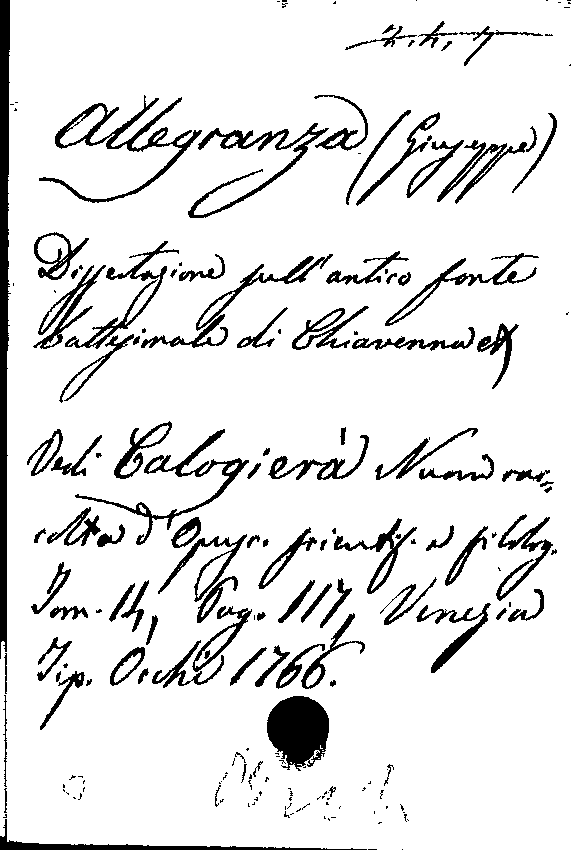 Z.4.7
Allegranza (Giuseppe)
Dissertazione sull'antico fonte
battesimale di Chiavenna
Vedi Calogierà Nuova rac-
colta d'Opusc. scientif. e filolog.
Tom. 14, Pag. 117, Venezia
Tip. Occhi 1766.